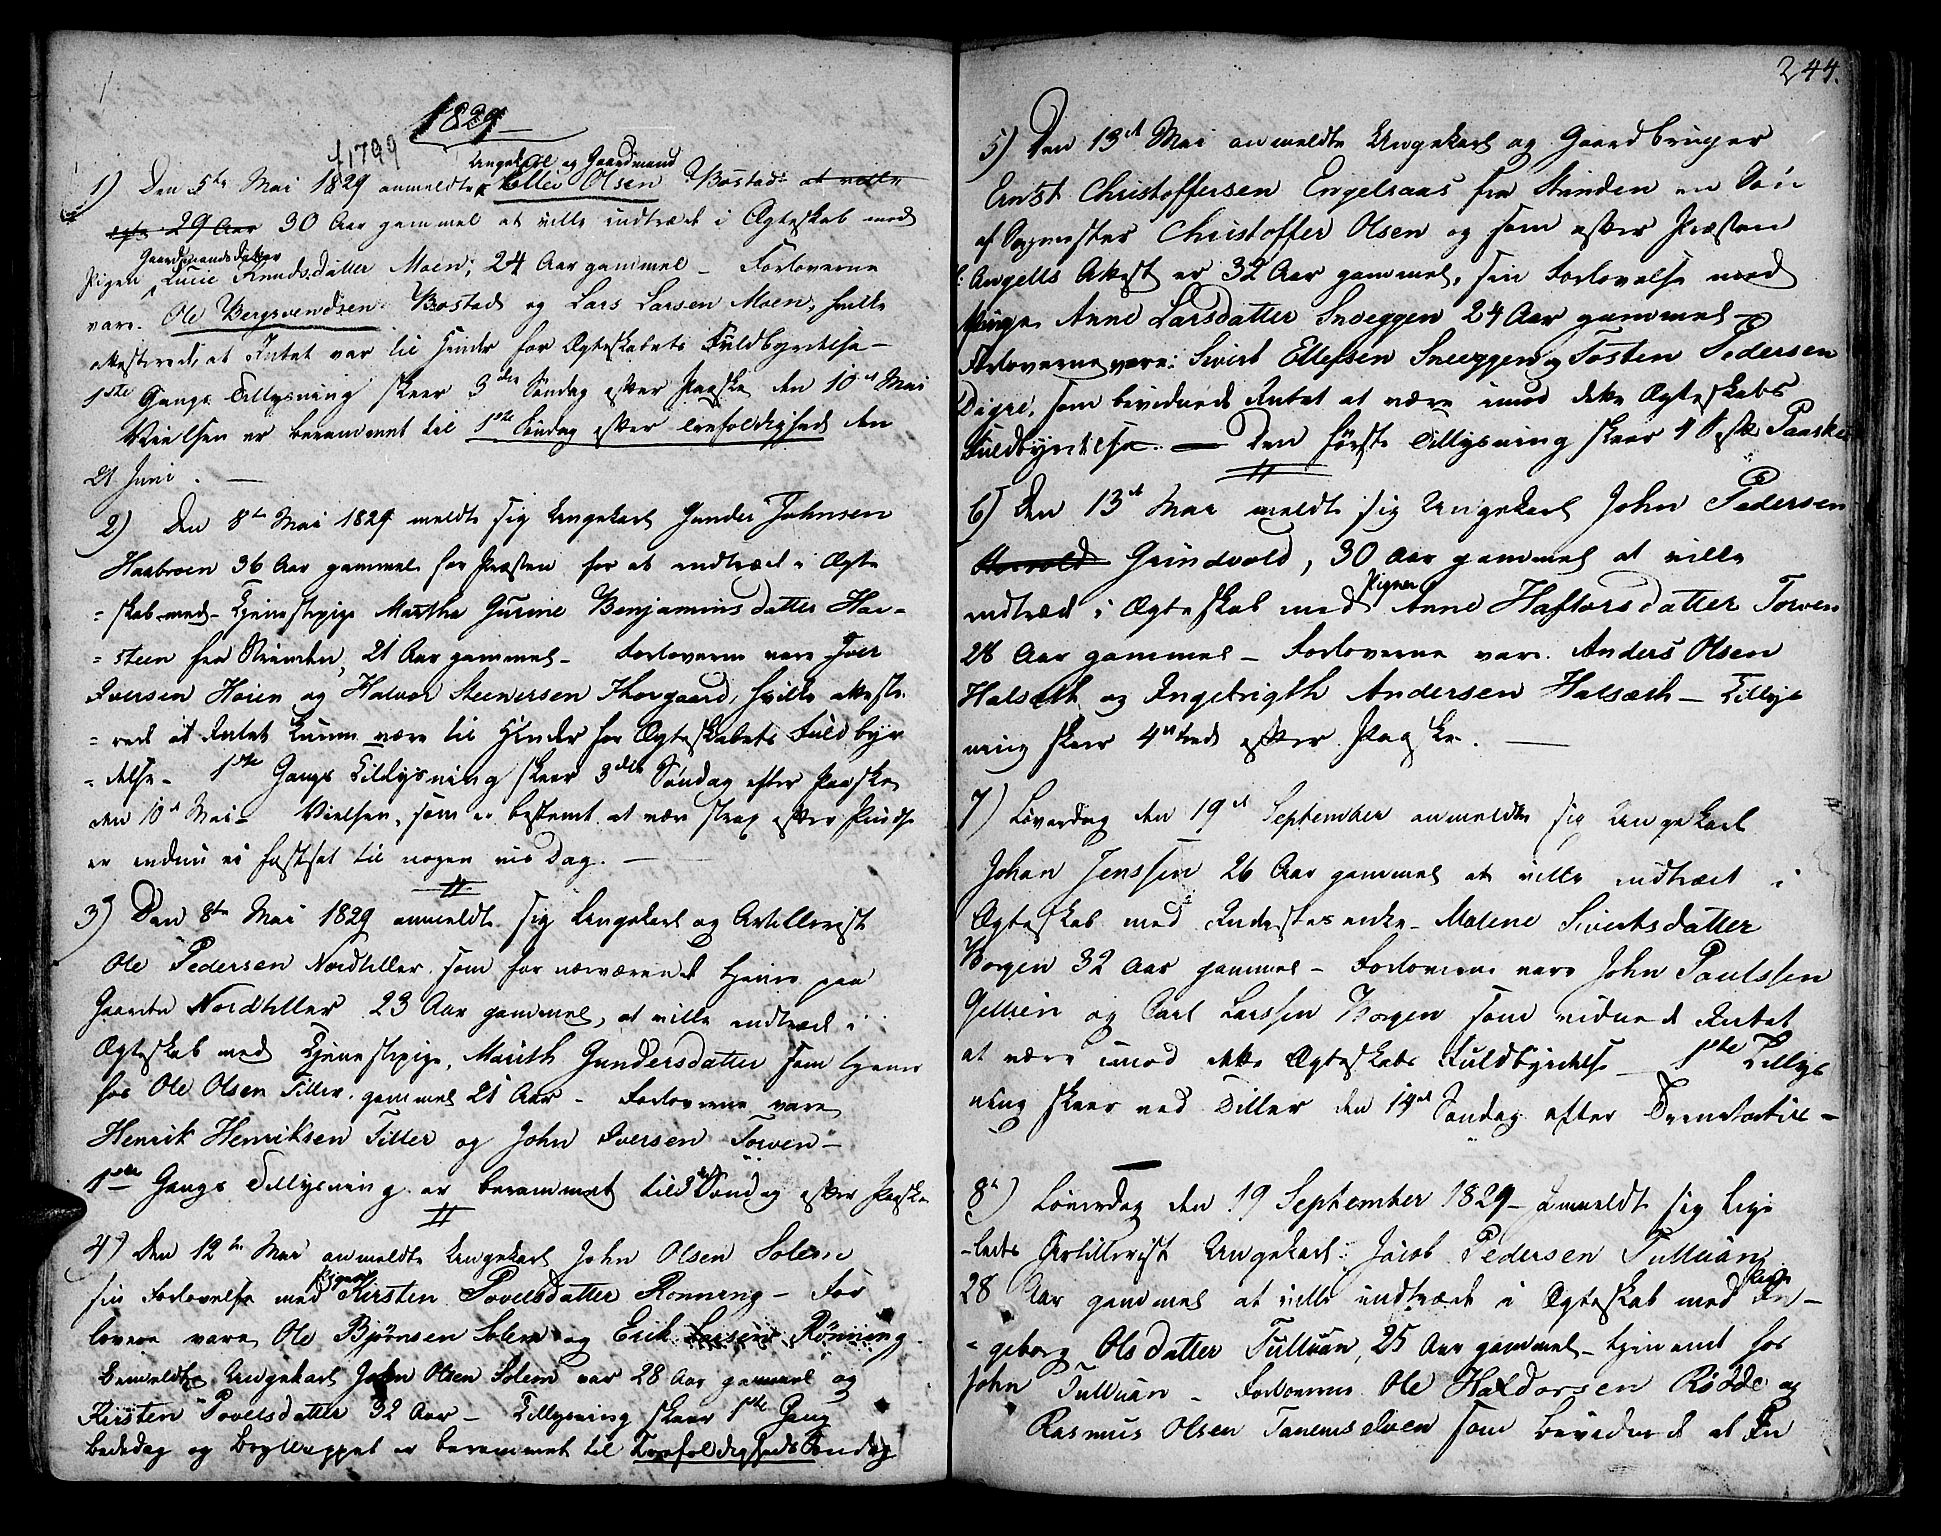 1829
f 1799
Ungekarl og Gaardmand
1) Den 5te Mai 1829 anmeldte Ellev Olsen Bostad at ville
29 Aar 30 Aar gammel at ville indtræde i Ægteskab med
Gaardmands Datter
Pigen Lucie Knudsdatter Moen, 24 Aar gammel – Forloverne
vare. Ole Bergsvendsen Bostad og Lars Larsen Moen, hvilke
attesterede, at Intet var til Hinder for Ægteskabets Fuldbyrdelse –
1ste Gangs Tillysning skeer 3die Søndag efter Paaske den 10de Mai
Vielsen er berammet til 1ste Søndag efter Trefoldighed den
21 Juni. –
2) Den 8de Mai 1829 meldte sig Ungekarl Gunder Johnsen
Haabroen 36 Aar gammel for Præsten for at indtræde i Ægte
= skab med Tjenestepige Martha Gurine Benjaminsdatter Hav-
= steen fra Strinden, 21 Aar gammel – Forloverne vare Iver
Iversen Høien og Halvor Steenersen Thorgaard, hvilke atteste-
= rede at Intet kunne være til Hinder for Ægteskabets Fuldbyr
= delse – 1ste Gangs Tillysning skeer 3die Søndag efter Paaske
den 10de Mai – Vielsen, som er bestemt at være strax efter Pindse
er endnu ei fastsat til nogen vis Dag. –
3) Den 8de Mai 1829 anmeldte sig Ungekarl og Artillerist
Ole Pedersen Nordtiller som for nærværende tjener paa
Gaarden Nordtiller 23 Aar gammel, at ville indtræde i
Ægteskab med Tjenestepige, Marith Gundersdatter som tjener
hos Ole Olsen Tiller, gammel 21 Aar – Forloverne vare
Henrik Henriksen Tiller og John Iversen Torven –
1ste Gangs Tillysning er berammet til 3die Søndag efter Paaske
4) Den 12te Mai anmeldte Ungekarl John Olsen Solem
Pigen
sin Forlovelse med Kirsten Povelsdatter Rønning – For
lovere vare Ole Bjørnsen Solem og Erik Larsen Rønning.
Bemeldte Ungekarl John Olsen Solem var 28 Aar gammel og
Kirsten Povelsdatter 32 Aar – Tillysning skeer 1ste Gang
Bededag og Brylluppet er berammet til Trefoldigheds Søndag
244.
5) Den 13de Mai anmeldte Ungekarl og Gaardbruger
Ernst Christoffersen Engelsaas fra Strinden en Søn
af Sagmester Christoffer Olsen og som efter Præsten
Angells Attest er 32 Aar gammel, sin Forlovelse med
Pigen Anne Larsdatter Sneeggen 24 Aar gammel –
Forloverne vare: Sivert Ellefsen Sneeggen og Tosten Pedersen
Digre, som bevidnede Intet at være imod dette Ægteskabs
Fuldbyrdelse. – Den første Tillysning skeer 4 S. efter Paaske
6) Den 13de Mai meldte sig Ungekarl John Pedersen
Grindvold, 30 Aar gammel at ville
Pigen
indtræde i Ægteskab med Anne Haftorsdatter Torven
28 Aar gammel – Forloverne vare. Anders Olsen
Halseth og Ingebrigth Andersen Halsæth – Tillys
ning skeer 4de Sønd efter Paaske. –
7) Løverdag den 19de September anmeldte sig Ungekarl
Johan Jenssen 26 Aar gammel at ville indtræde i
Ægteskab med Inderstesenke Malene Sivertsdatter
Borgen 32 Aar gammel – Forloverne vare John Paulssen
Gellein og Carl Larssen Borgen som vidnede Intet
at være imod dette Ægteskabs Fuldbyrdelse – 1ste Tillys
ning skeer ved Tiller den 14de Søndag efter Trinitatis –
8de) Løverdag den 19 September 1829 – anmeldte sig
Artillerist Ungekarl: Jacob Pedersen Tulluan
28 Aar gammel at ville indtræde i Ægteskab med Pigen In-
= geborg Olsdatter Tulluan, 25 Aar gammel – tjenende hos
John Tulluan – Forloverne Ole Haldorsen Rødde og
Rasmus Olsen Tanemselven som bevidnede at In